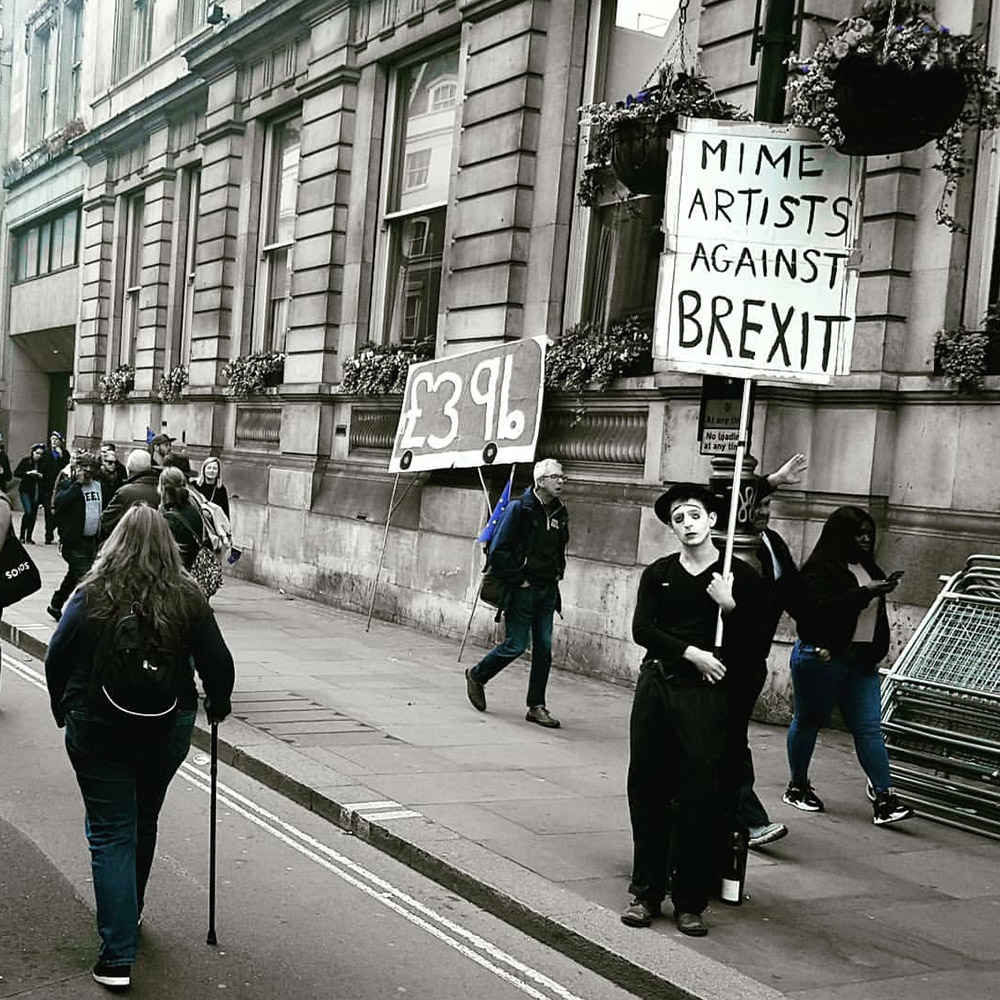 MIME
ARTISTS
AGAINST
BREXIT
£3 9b
At any tim
No loadin
at any tim
SOIOS